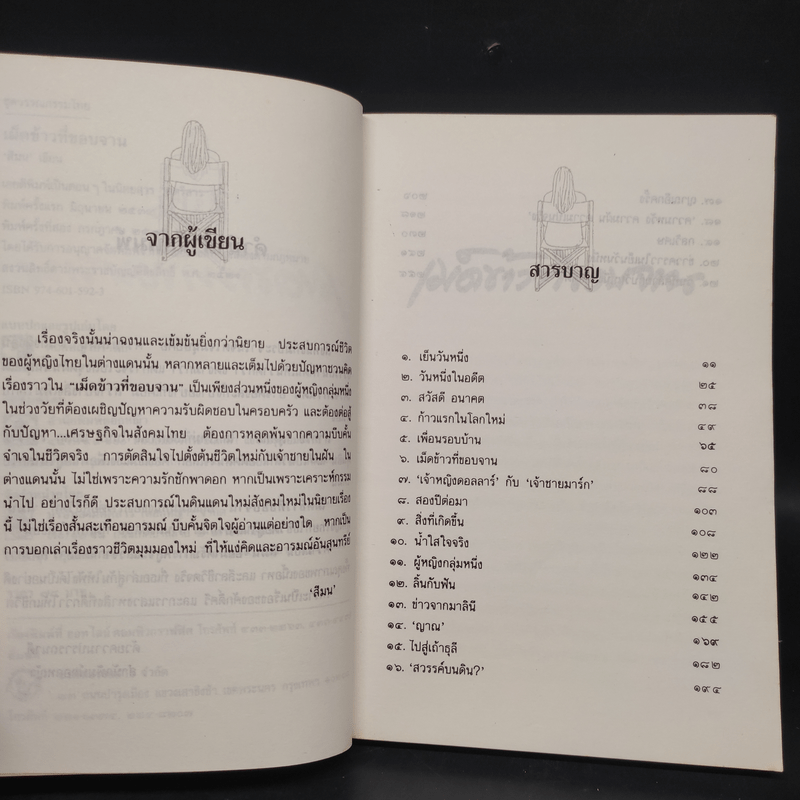 จากผู้เขียน
เรื่องจริงนั้นน่าฉงนและเข้มข้นยิ่งกว่านิยาย ประสบการณ์ชีวิต
ของผู้หญิงไทยในต่างแดนนั้น หลากหลายและเต็มไปด้วยปัญหาชวนคิด
เรื่องราวใน “เม็ดข้าวที่ขอบจาน” เป็นเพียงส่วนหนึ่งของผู้หญิงกลุ่มหนึ่ง
ในช่วงวัยที่ต้องเผชิญปัญหาความรับผิดชอบในครอบครัว และต้องต่อสู้
กับปัญหา...เศรษฐกิจในสังคมไทย ต้องการหลุดพ้นจากความบีบคั้น
จำเจในชีวิตจริง การตัดสินใจไปตั้งต้นชีวิตใหม่กับเจ้าชายในฝัน ใน
ต่างแดนนั้น ไม่ใช่เพราะความรักชักพาดอก หากเป็นเพราะเคราะห์กรรม
นำไป อย่างไรก็ดี ประสบการณ์ในดินแดนใหม่สังคมใหม่ในนิยายเรื่อง
นี้ ไม่ใช่เรื่องสั้นสะเทือนอารมณ์ บีบคั้นจิตใจผู้อ่านแต่อย่างใด หากเป็น
การบอกเล่าเรื่องราวชีวิตมุมมองใหม่ ที่ให้แง่คิดและอารมณ์อันสุนทรีย์
'สีมน'
สารบาญ
๑. เย็นวันหนึ่ง ๑๑
๒. วันหนึ่งในอดีต ๒๕
๓. สวัสดี อนาคต ๓๘
๔. ก้าวแรกในโลกใหม่ ๔๙
๕. เพื่อนรอบบ้าน ๖๕
๖. เม็ดข้าวที่ขอบจาน ๘๐
๗. 'เจ้าหญิงดอลลาร์' กับ 'เจ้าชายมาร์ก' ๘๘
๘. สองปีต่อมา ๑๐๓
๙. สิ่งที่เกิดขึ้น ๑๐๘
๑๐. น้ำใสใจจริง ๑๒๒
๑๑. ผู้หญิงกลุ่มหนึ่ง ๑๓๔
๑๒. ลิ้นกับฟัน ๑๔๒
๑๓. ข่าวจากมาลินี ๑๕๕
๑๔. 'ญาณ' ๑๖๙
๑๕. ไปสู่เถ้าธุลี ๑๘๒
๑๖. 'สวรรค์บนดิน?' ๑๙๔